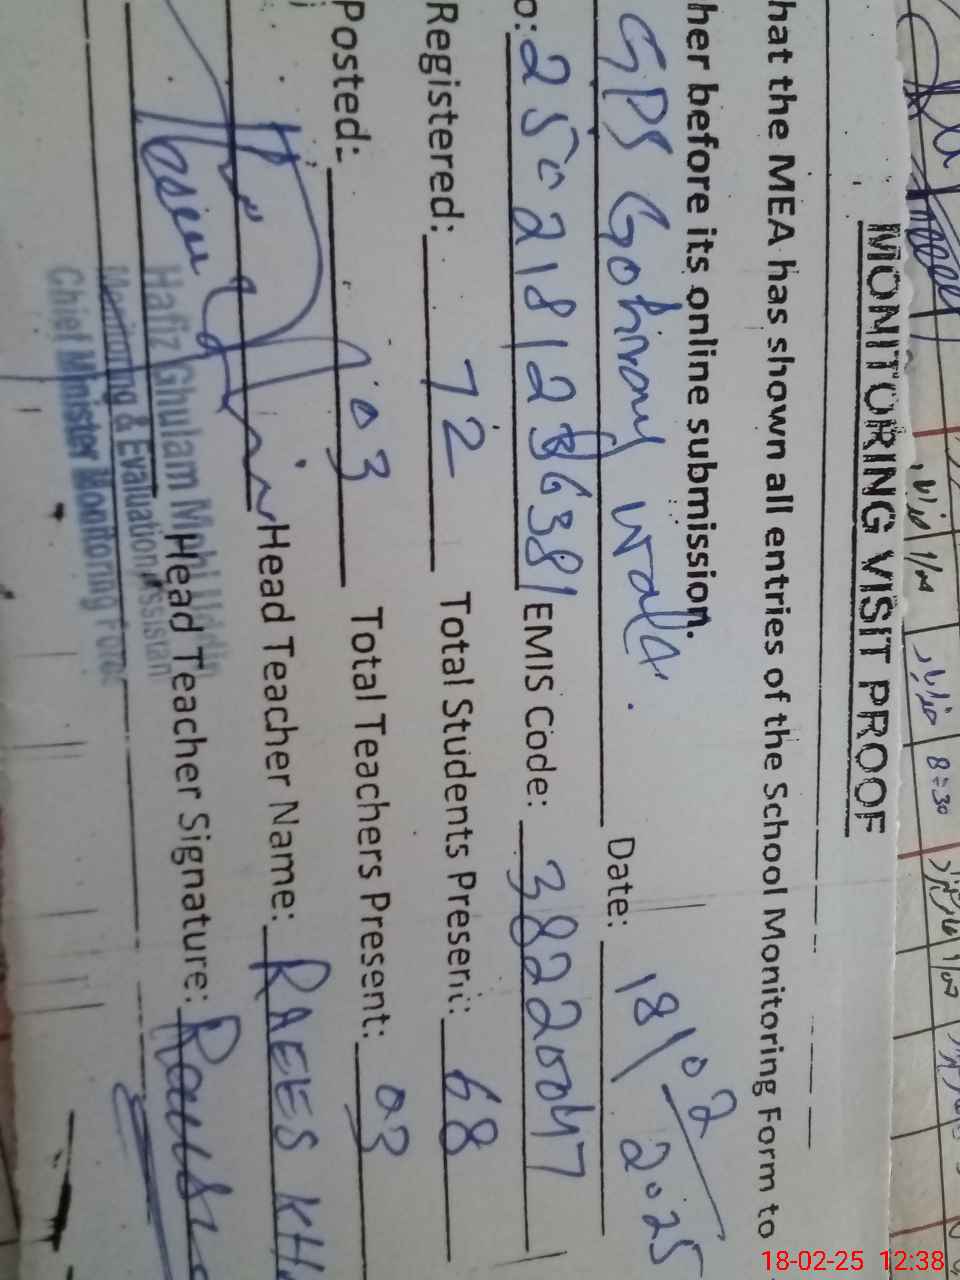 MONITORING VISIT PROOF
hat the MEA has shown all entries of the School Monitoring Form to
her before its online submission.
GPS Gohrany wala. Date: 18/02/2025
o: EMIS Code: 38220047
Registered: 72 Total Students Present: 68
Posted: 03 Total Teachers Present: 03
Head Teacher Name: RAEES KH
Head Teacher Signature:
Hafiz Ghulam Mohi Uddin
Monitoring & Evaluation Assistan
Chief Minister Monitoring Force
8:30
18-02-25 12:38